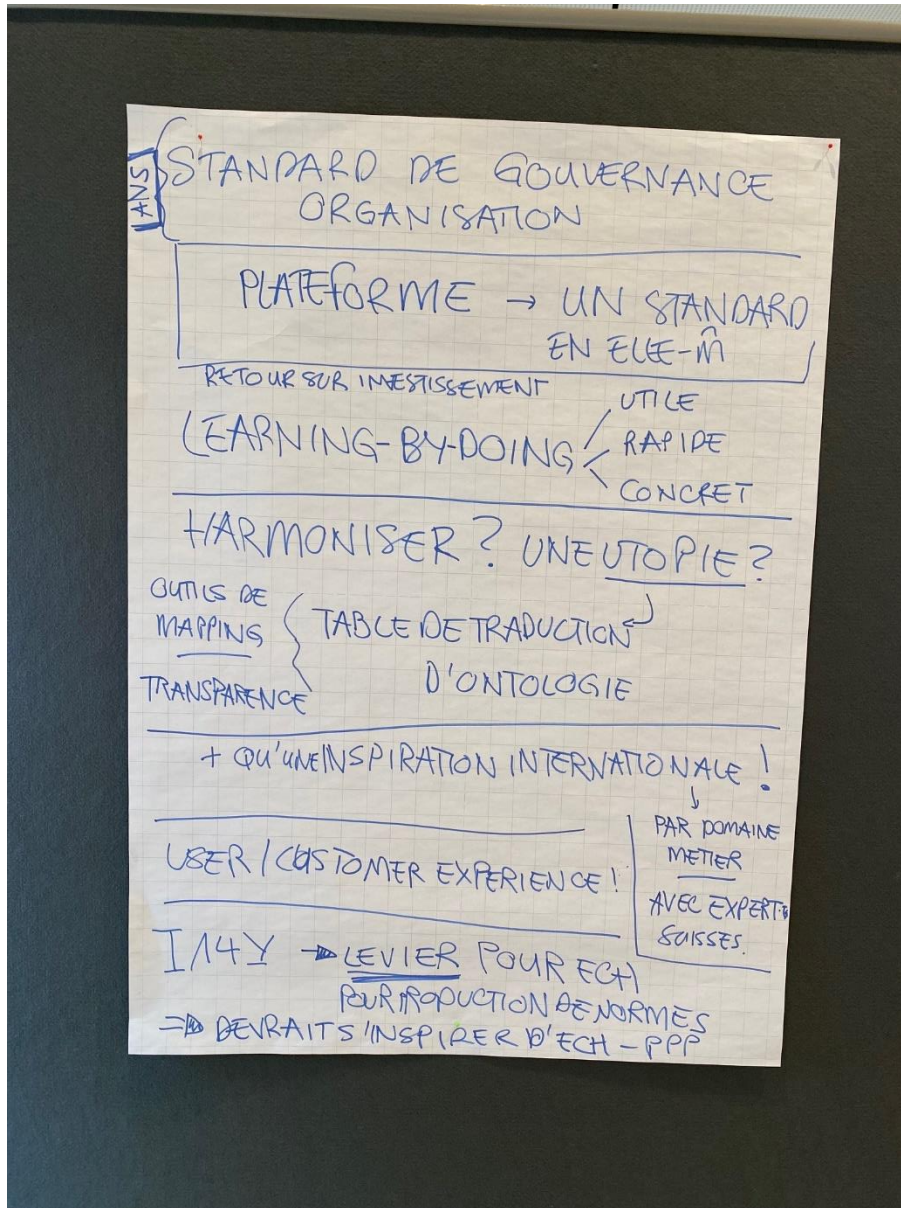 ANS
STANDARD DE GOUVERNANCE
ORGANISATION
PLATEFORME → UN STANDARD
EN ELLE-M̂
RETOUR SUR INVESTISSEMENT
LEARNING-BY-DOING
UTILE
RAPIDE
CONCRET
HARMONISER? UNE UTOPIE?
OUTILS DE
MAPPING
TRANSPARENCE
TABLE DE TRADUCTION
D'ONTOLOGIE
+ QU'UNE INSPIRATION INTERNATIONALE!
PAR DOMAINE
METIER
AVEC EXPERT·E
SUISSES.
USER / CUSTOMER EXPERIENCE!
I14Y → LEVIER POUR ECH
POUR PRODUCTION DE NORMES
=> DEVRAIT S'INSPIRER D'ECH - PPP